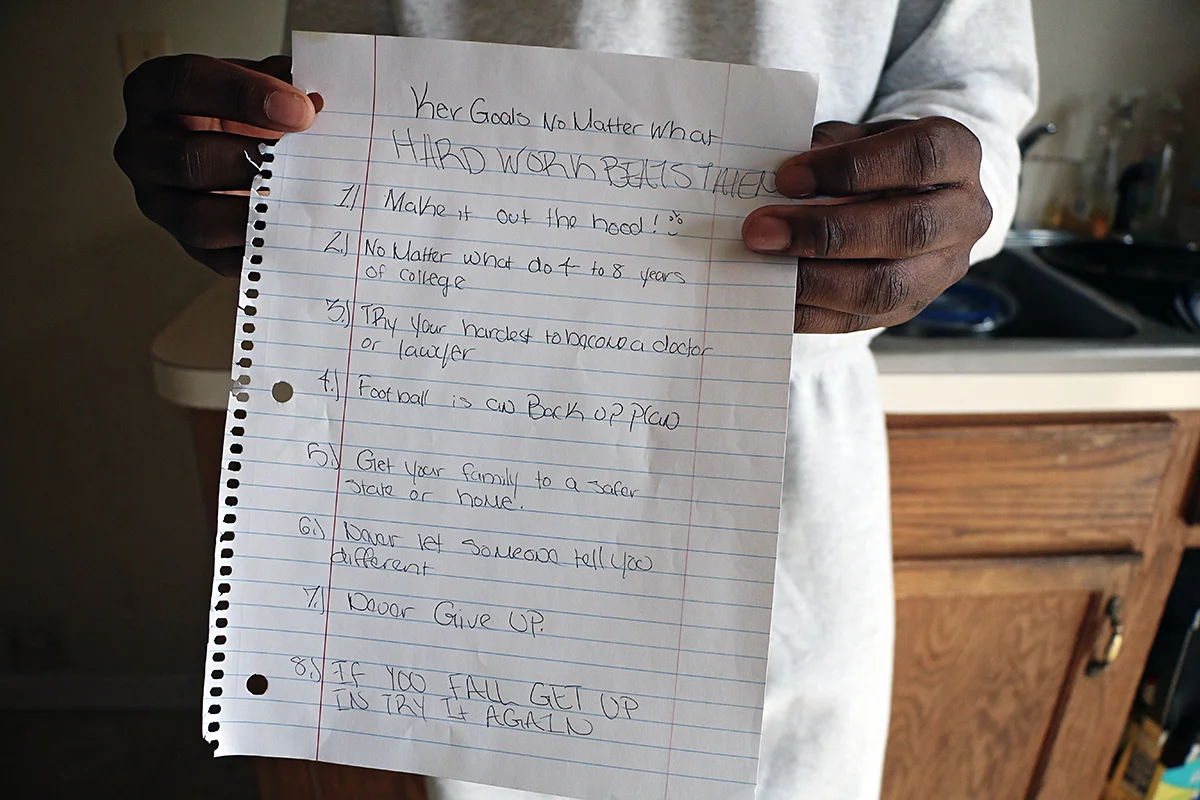 Key Goals No Matter What
HARD WORK BEATS TALEN
1.) Make it out the hood!
2.) No Matter what do 4 to 8 years
of college
3.) Try your hardest to become a doctor
or lawyer
4.) Football is an Back up plan
5.) Get your family to a safer
state or home.
6.) Never let someone tell you
different
7.) Never Give UP.
8.) IF YOU FALL GET UP
IN TRY It AGAIN